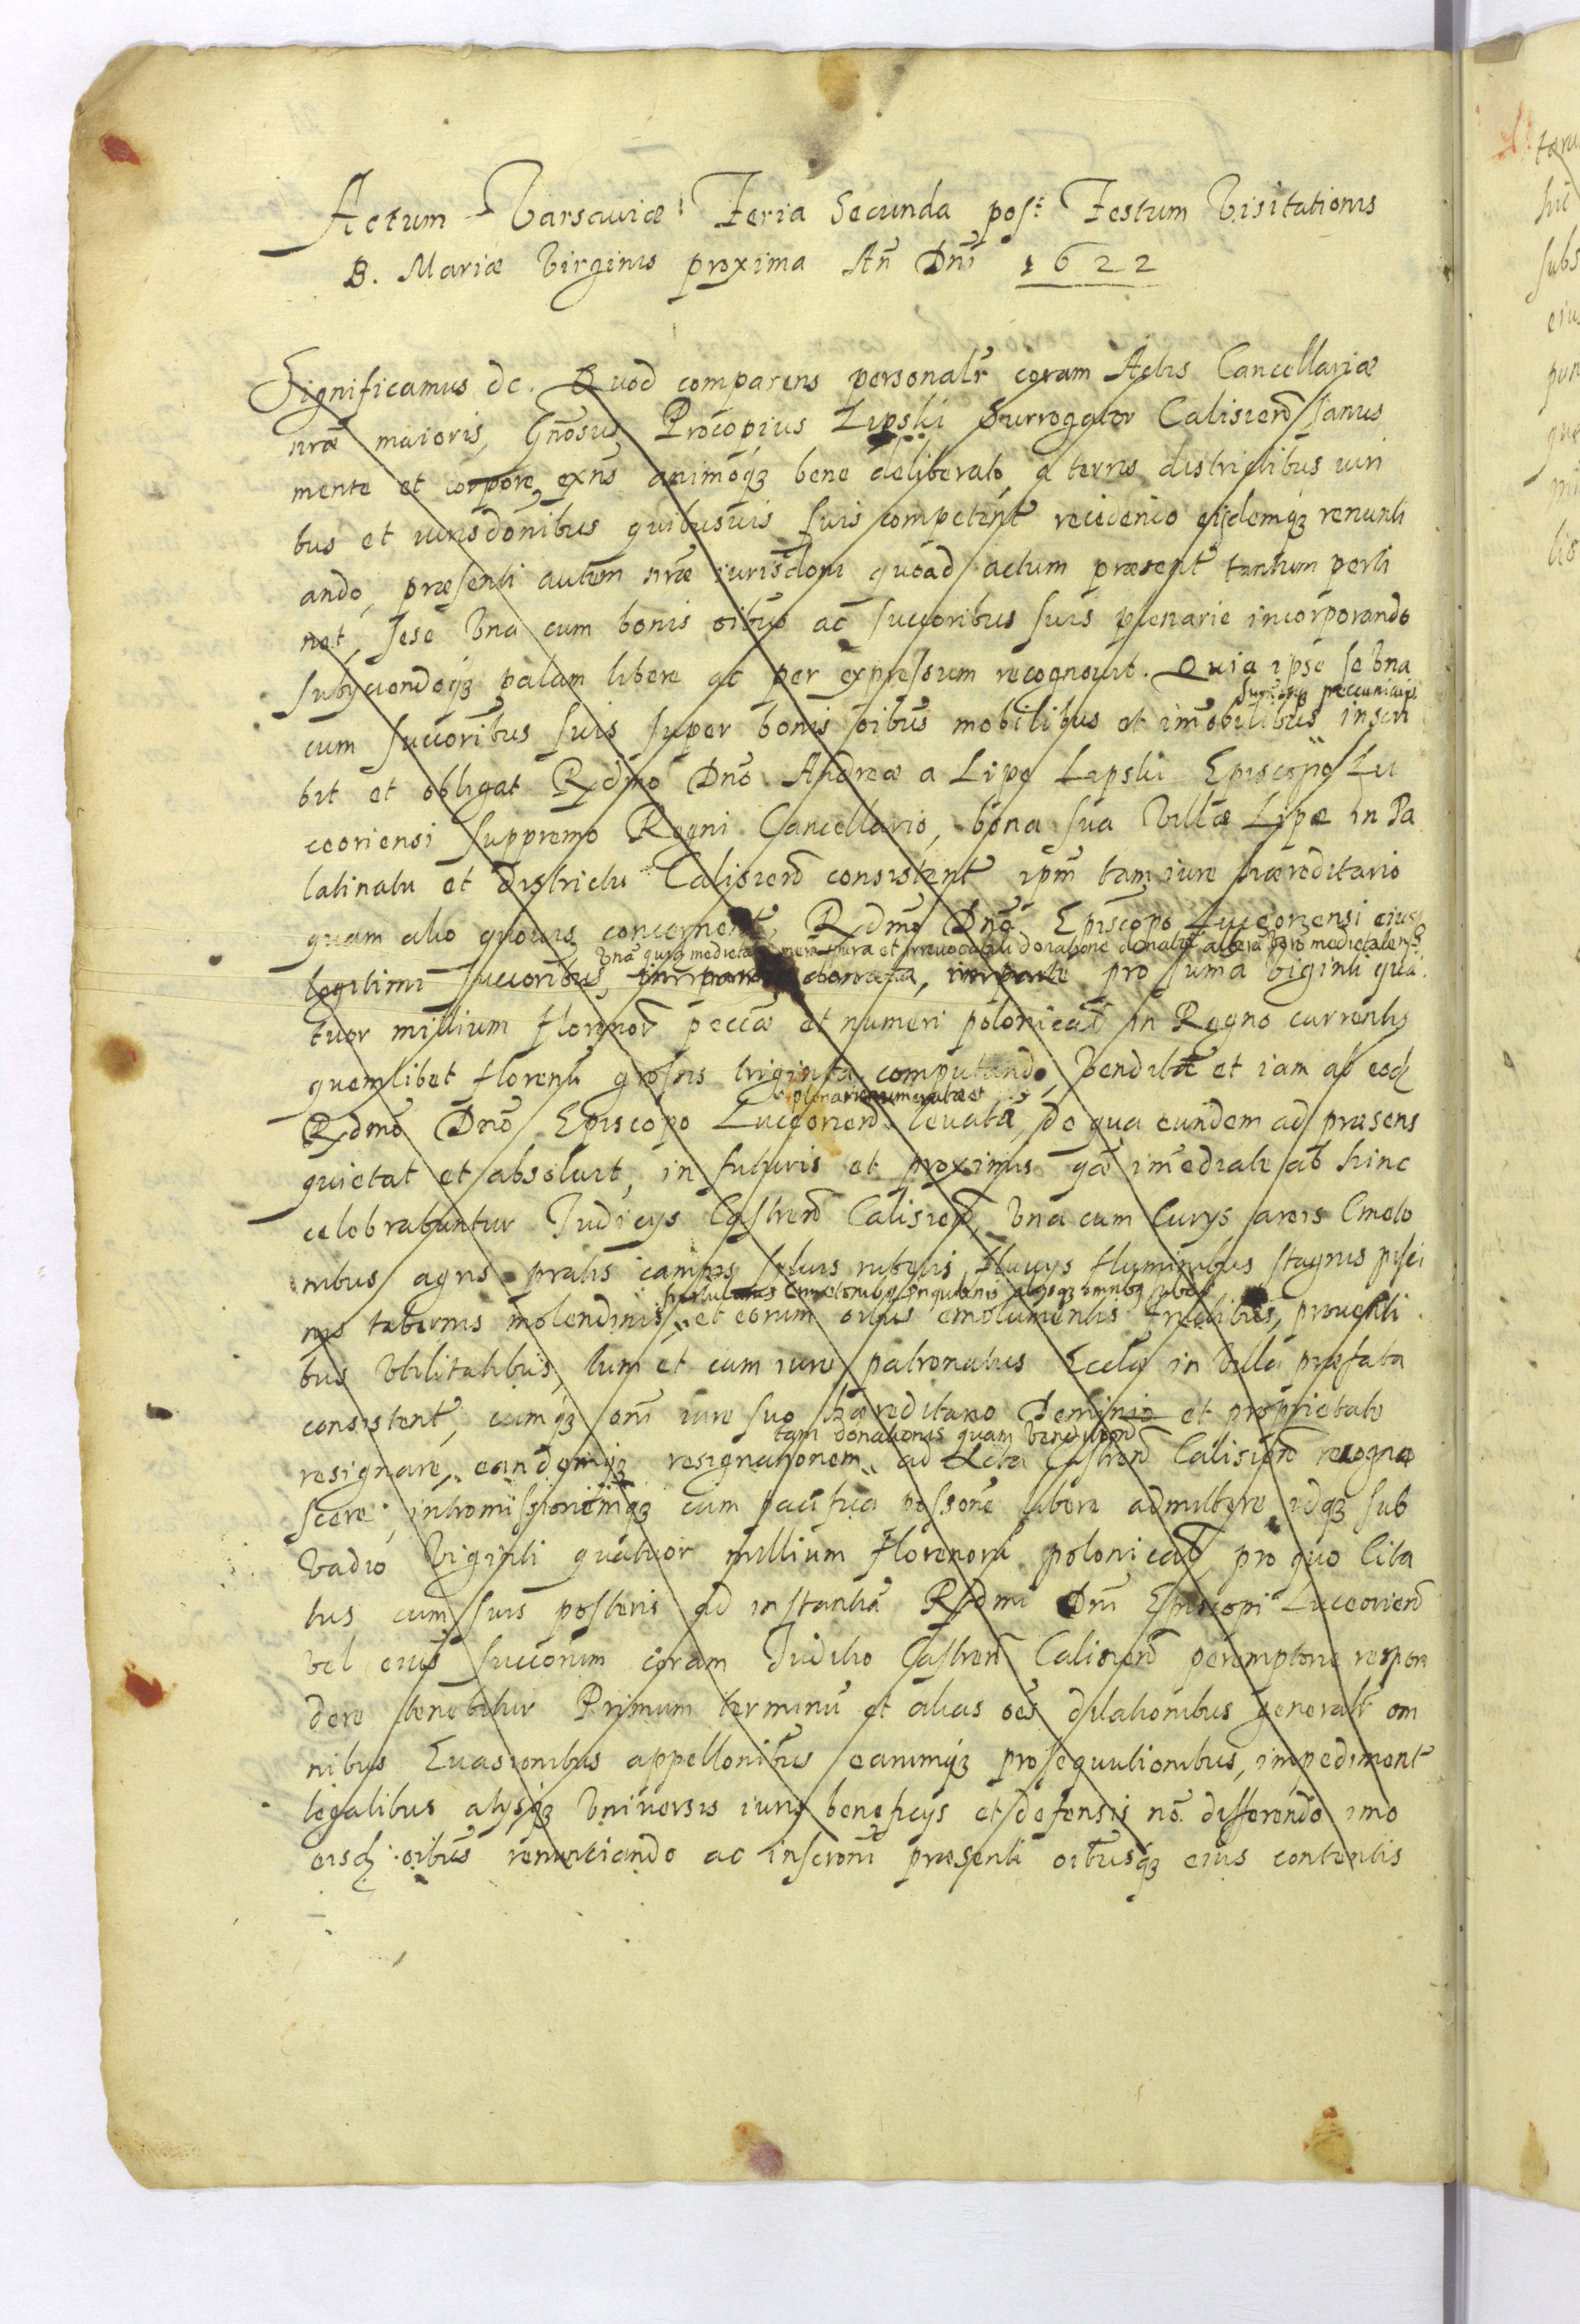 Actum Varsaviæ Feria Secunda post Festum Visitationis
B. Mariæ Virginis proxima An̄ Dn̄i 1622
Significamus &c. Quod comparens personalr̄ coram Actis Cancellariæ
nr̄æ maioris, Gn̄osus Procopius Lipski Surrogator Calisien̄ sanus
mente et corpore exn̄s animoq3 bene deliberato, a terris districtibus iuri
bus et iurisdōnibus quibusvis suis competen̄t recedendo eisdemq3 renunti
ando, præsenti autem nr̄æ iurisdōni quoad actum præsent̄ tantum perti
net, sese Vna cum bonis oībus ac succoribus suis plenarie incorporando
subyciendoq3 palam libere ac per expressum recognovit. Quia ipse se Vna
summisq3 peccuniarys
cum succoribus suis super bonis oībus mobilibus et imobilibus inscri
bit et obligat Rdmo Dn̄o Andreæ a Lipe Lipski Episcopo Lu
ceoriensi Suppremo Regni Cancellario, bona sua Villæ Lipe in Pa
latinatu et districtu Calisien̄ consistent̄ ipm̄ tam iure hæreditario
quam alio quovis concernent̄, Rdmo Dn̄o Episcopo Luceoriensi eiusq3
Vnā quid medietatē mera pura et irrevocabili donatione donatā alterā vero medietatem
legitimi succoribus, donata, in parte pro suma Viginti qua
tuor millium florenor̄ peccæ et numeri polonical̄ in Regno currentis
quemlibet florenū grossis triginta computando, Vendita et iam ab eod
plenarie numerata et
Rdmo Dn̄o Episcopo Luceorien̄ levata, de qua eundem ad præsens
quietat et absolvit, in futuris et proximis quæ im̄ediate ab hinc
celebrabuntur Judicys Castren̄ Calisien̄, Vna cum Curys areis Cmeto
nibus agris pratis campis sylvis rubetis, fluvys fluminibus stagnis pisci
hortulanis Cmetonibus inquilinis alysq3 omnibus subd
nis tabernis molendinis, et eorum oībus emolumentis fructibus, proventi
bus Vtilitatibus, tum et cum iure patronatus Eccl̄æ in Villa præfata
consistent̄, cumq3 om̄i iure suo hæreditario Dominio et proprietate
tam donationis quam venditionis
resignare, eandemq3 resignationem ad Acta Castren̄ Calisien̄ recogno
scere, intromissionemq3 cum pacifica possōne libere admittere, idq3 sub
Vadio Viginti quatuor millium florenorū polonical̄, pro quo Cita
tus cum suis posteris ad instantiā Rdmi Dn̄i Episcopi Luceorien̄
vel eius succorum coram Judicio Castren̄ Calisien̄ peremptorie respon
dere tenebitur Primum terminū et alias oēs dilationibus generalr̄ om
nibus Evasionibus appellonibus earumq3 prosequutionibus, impediment̄
legalibus alysq3 Vniversis iuris beneficys et defensis nō differendo imo
eisd oībus renunciando ac inscrōni præsenti oībusq3 eius contentis